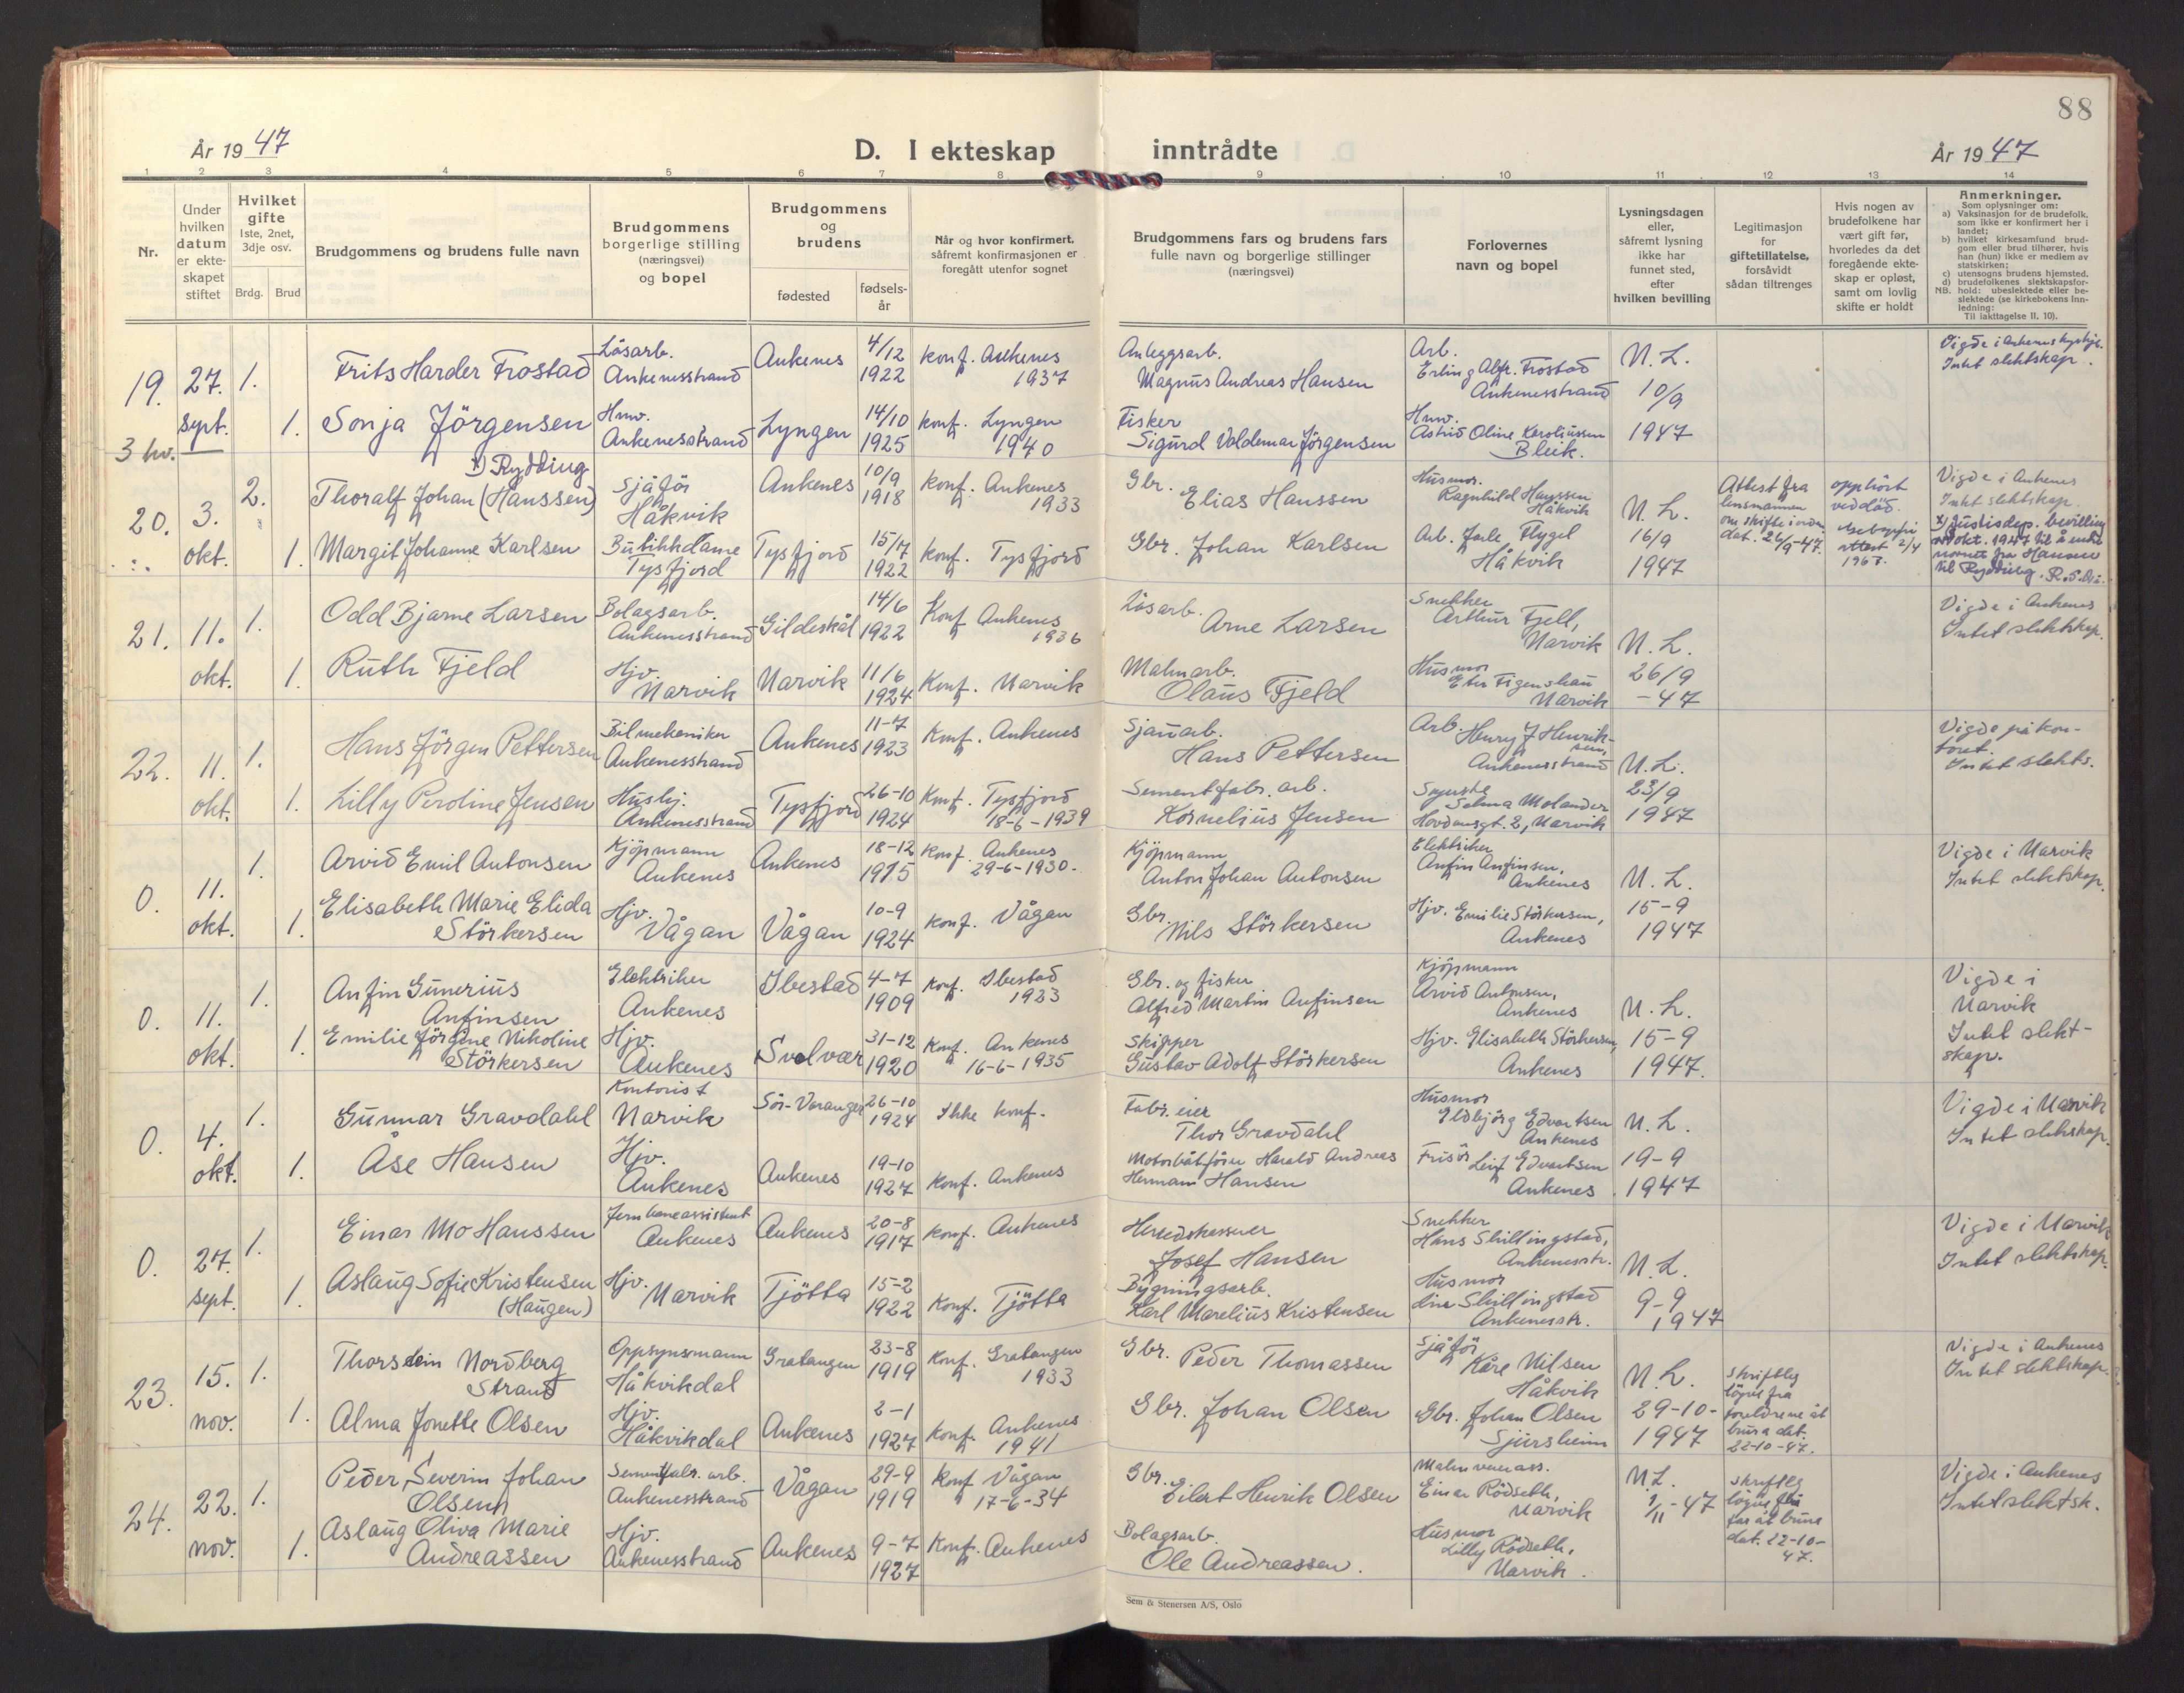 88
År 1947
D. I ekteskap inntrådte
År 1947
1 2 3 4 5 6 7 8 9 10 11 12 13 14
Nr.
Under hvilken datum er ekteskapet stiftet
Hvilket gifte
1ste, 2net, 3dje osv.
Brdg. Brud
Brudgommens og brudens fulle navn
Brudgommens borgerlige stilling (næringsvei) og bopel
Brudgommens og brudens
fødested
fødselsår
Når og hvor konfirmert, såfremt konfirmasjonen er foregått utenfor sognet
Brudgommens fars og brudens fars fulle navn og borgerlige stillinger (næringsvei)
Forlovernes navn og bopel
Lysningsdagen eller, såfremt lysning ikke har funnet sted, efter hvilken bevilling
Legitimasjon for giftetillatelse, forsåvidt sådan tiltrenges
Hvis nogen av brudefolkene har vært gift før, hvorledes da det foregående ekteskap er opløst, samt om lovlig skifte er holdt
Anmerkninger.
Som oplysninger om:
a) Vaksinasjon for de brudefolk, som ikke er konfirmert her i landet;
b) hvilket kirkesamfund brudgom eller brud tilhører, hvis han (hun) ikke er medlem av statskirken;
c) utensogns brudens hjemsted.
d) brudefolkenes slektskapsforhold: ubeslektede eller beslektede (se kirkebokens Innledning:
NB.
Til iakttagelse II, 10).
19. 27. sept. 1.
3 hv.
Frits Harder Frostad
Låsarb.
Ankenesstrand
Ankenes
4/12
1922
konf. Ankenes
1937
Anleggsarb.
Magnus Andreas Hansen
Arb.
Erling Alfr. Frostad
Ankenesstrand
N. L.
10/9
1947
Intet slektskap.
1. Sonja Jörgensen
Hnv.
Ankenesstrand
Lyngen
14/10
1925
konf. Lyngen
1940
Fisker
Sigurd Valdemar Jörgensen
Hnv.
Astrid Oline Karoliussen
Bleik.
20. 3. okt. 2.
x) Rydding
Thoralf Johan (Hanssen)
Sjåför
Håkvik
Ankenes
10/9
1918
konf. Ankenes
1933
Gbr.
Elias Hanssen
Husmor.
Ragnhild Hanssen
Håkvik
N. L.
16/9
1947
Attest fra
lensmannen
om skifte i orden
dat. 26/9-47.
opphört
ved död.
attest 2/4
1968.
Vigde i Ankenes
Intet slektskap.
x) Justisdep. bevilling
okt. 1947 til å endre
navnet fra Hanssen
til Rydding.
1. Margit Johanne Karlsen
Butikkdame
Tysfjord
Tysfjord
15/7
1922
konf. Tysfjord
Gbr. Johan Karlsen
Arb. Jarle Flygel
Håkvik
21. 11. okt. 1.
Odd Bjarne Larsen
Bolagsarb.
Ankenesstrand
Gildeskål
14/6
1922
Konf Ankenes
1936
Låsarb.
Arne Larsen
Snekker
Arthur Fjell,
Narvik
N. L.
26/9
-47
Vigde i Ankenes
Intet slektskap.
1. Ruth Fjeld
Hjv.
Narvik
Narvik
11/6
1924
Konf. Narvik
Malmarb.
Olaus Fjeld
Husmor
Narvik
22. 11. okt. 1.
Hans Jörgen Pettersen
Bilmekaniker
Ankenesstrand
Ankenes
11-7
1923
Konf. Ankenes
Sjauarb.
Hans Pettersen
Arb. Henry J Henrik-
sen,
Ankenesstrand
N. L.
23/9
1947
Vigde på kon-
toret.
Intet slekts.
1. Lilly Peroline Jensen
Hushj.
Ankenesstrand
Tysfjord
26-10
1924
Konf. Tysfjord
18-6-1939
Sementfabr. arb.
Kornelius Jensen
Syerske
Selma Molander
Hovdensgt. 2, Narvik
0. 11. okt. 1.
Arvid Emil Antonsen
Kjöpmann
Ankenes
Ankenes
18-12
1915
Konf. Ankenes
29-6-1930.
Kjöpmann
Anton Johan Antonsen
Elektriker
Anfin Anfinsen,
Ankenes
N. L.
15-9
1947
Vigde i Narvik
Intet slektskap.
1. Elisabeth Marie Elida
Störkersen
Hjv.
Vågan
Vågan
10-9
1924
konf. Vågan
Gbr.
Nils Störkersen
Hjv. Emilie Störkersen,
Ankenes
0. 11. okt. 1.
Anfin Gunerius
Anfinsen
Elektriker
Ankenes
Ibestad
4-7
1909
konf. Ibestad
1923
Gbr. og fisker
Alfred Martin Anfinsen
Kjöpmann
Arvid Antonsen,
Ankenes
N. L.
15-9
1947.
Vigde i
Narvik
Intet slekt-
skap.
1. Emilie Jörgine Nikoline
Störkersen
Hjv.
Ankenes
Svolvær
31-12
1920
Konf. Ankenes
16-6-1935
Skipper
Gustav Adolf Störkersen
Hjv. Elisabeth Störkersen,
Ankenes
0. 4. okt. 1.
Gunnar Gravdahl
Kontorist
Narvik
Sör-Varanger
26-10
1924
Ikke konf.
Fabr. eier
Thor Gravdahl
Husmor
Eldbjörg Edvartsen
Ankenes
N. L.
19-9
1947
Vigde i Narvik
Intet slektskap.
1. Åse Hansen
Hjv.
Ankenes
Ankenes
19-10
1927
Konf. Ankenes
Motorbåtförer Harald Andreas
Hermann Hansen
Frisör Leif Edvartsen
Ankenes
0. 27. sept. 1.
Einar Mo Hanssen
Jernbaneassistent
Ankenes
Ankenes
20-8
1917
konf. Ankenes
Herredskasserer
Josef Hansen
Snekker
Hans Skillingstad,
Ankenesstr.
N. L.
9-9
1947
Vigde i Narvik
Intet slektskap.
1. Aslaug Sofie Kristensen
(Haugen)
Hjv.
Narvik
Tjötta
15-2
1922
Konf. Tjötta
Bygningsarb.
Karl Marelius Kristensen
Husmor
Skillingstad
Ankenesstr.
23. 15. nov. 1.
Thorstein Nordberg
Strand
Oppsynsmann
Håkvikdal
Gratangen
23-8
1919
Konf. Gratangen
1933
Gbr. Peder Thomassen
Sjåför
Kåre Nilsen
Håkvik
N. L.
29-10-
1947
Skriftleg
löyve frå
foreldrene åt
brura dat.
22-10-47.
Vigde i Ankenes
Intet slektskap.
1. Alma Jonette Olsen
Hjv.
Håkvikdal
Ankenes
2-1
1927
Konf. Ankenes
1941
Gbr. Johan Olsen
Gbr. Johan Olsen
Sjursheim
24. 22. nov. 1.
Peder Severin Johan
Olsen
Sementfabr. arb.
Ankenesstrand
Vågan
29-9
1919
Konf Vågan
17-6-34
Gbr.
Eilert Henrik Olsen
Einar Rödseth,
Narvik
N. L.
1/11-47
skriftleg
löyve frå
far åt brura
dat. 22-10-
47.
Vigde i Ankenes
Intet slektsk.
1. Aslaug Oliva Marie
Andreassen
Hjv.
Ankenesstrand
Ankenes
9-7
1927
Konf. Ankenes
Bolagsarb.
Ole Andreassen.
Husmor
Lilly Rödseth,
Narvik.
Sem & Stenersen A/S, Oslo